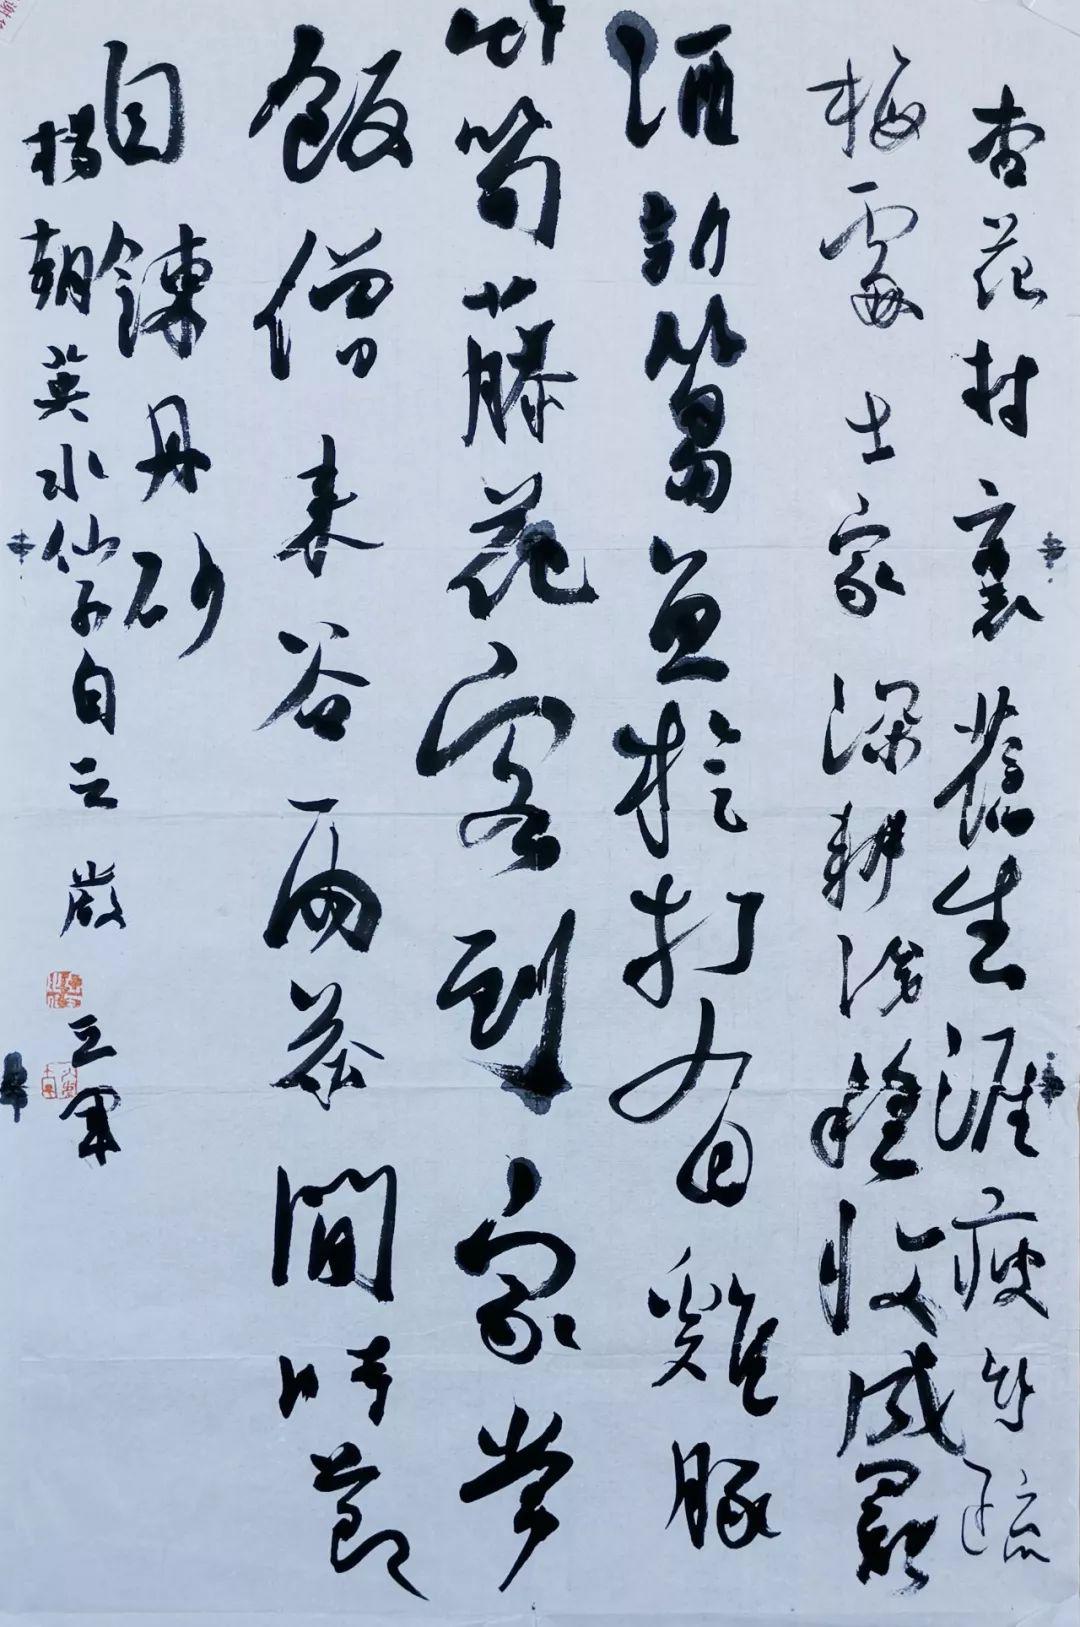 杏花村裏舊生涯瘦竹疏
梅處士家深耕淺種收成罷
酒新篘魚旋打有雞豚
竹筍藤花客到家常
飯僧來谷雨茶間時節
自鍊丹砂
楊朝英水仙子白云